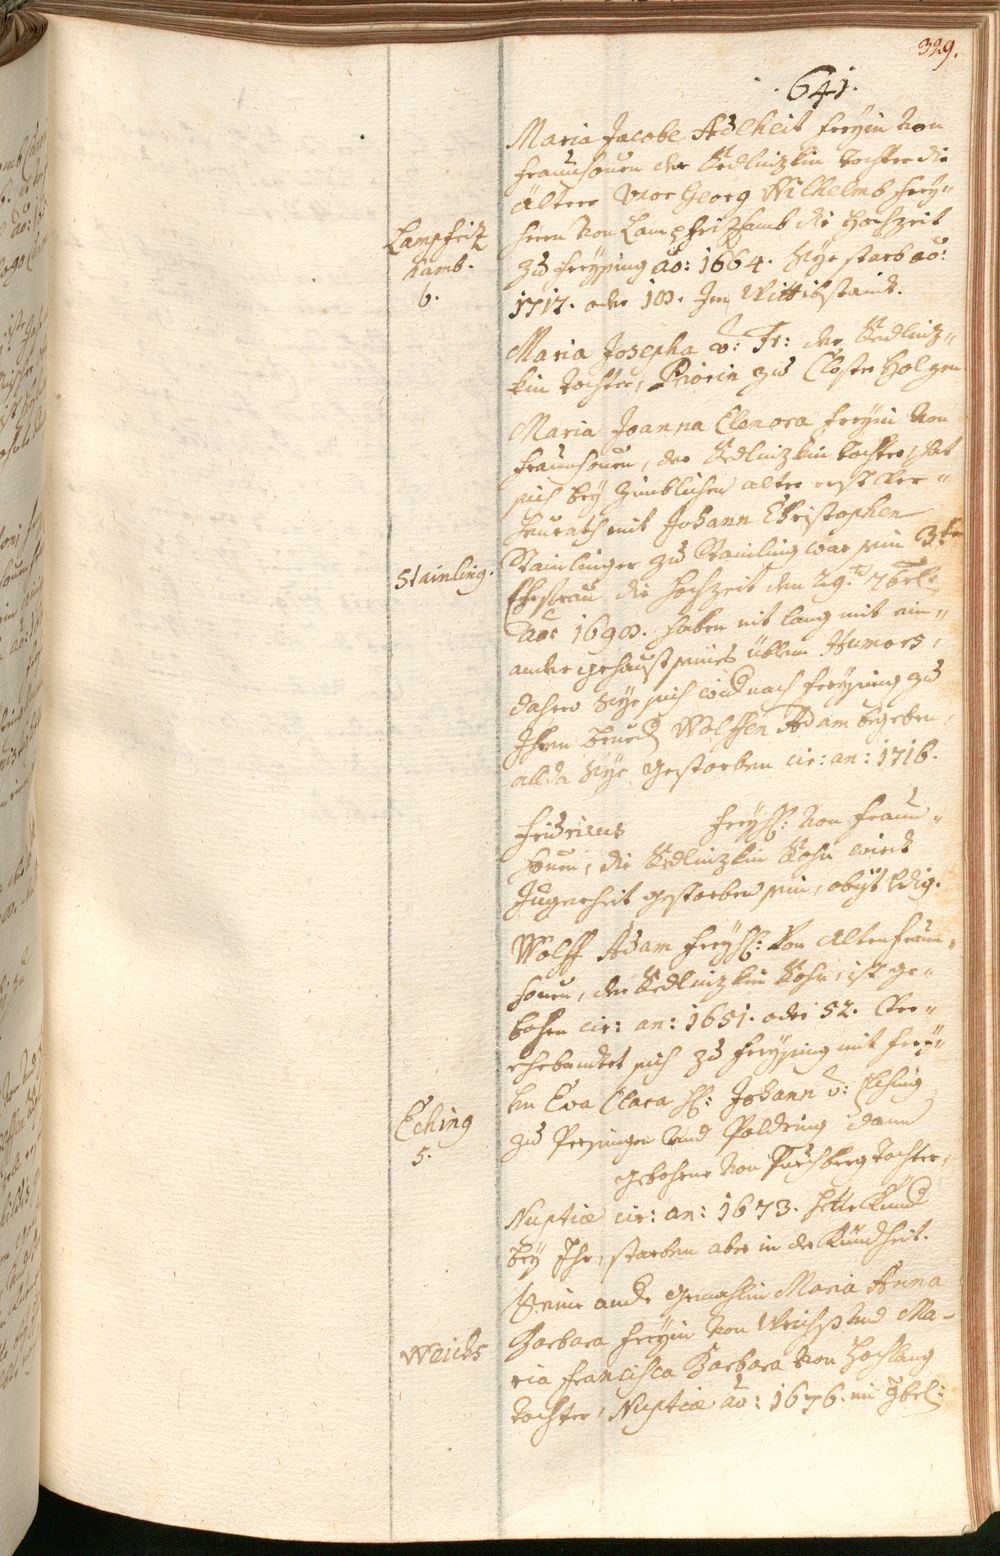 329.
641.
Maria Jacobe Adlheit Freyin von
Fraunhouen der Kedlinzkin Tochter die
ältere Uxor Georg Wilhelmb Frey¬
herrn von Lampfritzhamb die Hochzeit
zu Freysing ao: 1664. Sye starb ao:
1717. oder 18. Im Wittibstandt.
Lampfritz
hamb.
6.
Maria Josepha v: Fr: der Kedlinz¬
kin Tochter, Priorin zu Closter Holzen
Maria Joanna Elenora Freyin von
Fraunhouen, der Kedlinzkin Tochter, hat
sich bey zimblichen alter erst ver¬
heurath mit Johann Christophen
Stainlinger zu Stainling war sein 3te
Ehefrau die Hochzeit den 29t 7bris
ao: 1698. haben nit lang mit ein¬
ander gehaust seines üblen Humors,
dahero Sye sich widnach Freysing zu
Ihren brued Wolffen Adam begeben,
allda Sye gestorben cir: an: 1716.
Stainling.
Fridericus Freyh: von Fraun¬
houen, die Kedlinzkin Sohn wirdt
Jugentheit gestorben sein, obyt ledig.
Wolff Adam Freyh: von Alten Fraun¬
houen, der Kedlinzkin Sohn, ist ge¬
bohrn cir: an: 1651. oder 52. Ver¬
ehebandtet sich zu Freysing mit Frey¬
lin Eva Clara H: Johann v: Eching
zu Persingen und Poldring dann
gebohrne von Puechberg Tochter,
Nuptiæ cir: an: 1673. hette Künd
bey Ihr, starben aber in der Kündheit.
Eching
5.
Seine ande gemahlin Maria Anna
Barbara Freyin von Weichß und Ma¬
ria Francisca Barbara von Haslang
Tochter, Nuptiæ ao: 1676. mi 9bri:
Weichs